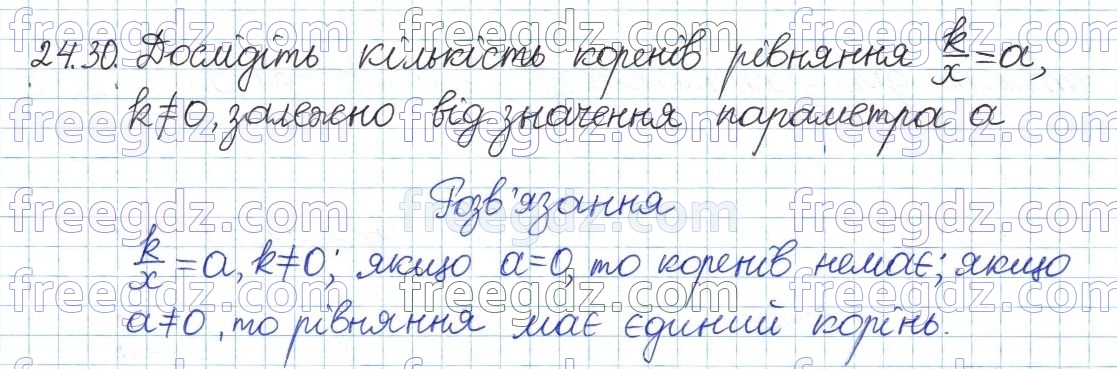 24.30. Дослідіть кількість коренів рівняння k/x = a,
k≠0, залежно від значення параметра a
Розв'язання
k/x = a, k≠0; якщо a=0, то коренів немає; якщо
a≠0, то рівняння має єдиний корінь.
freegdz.com